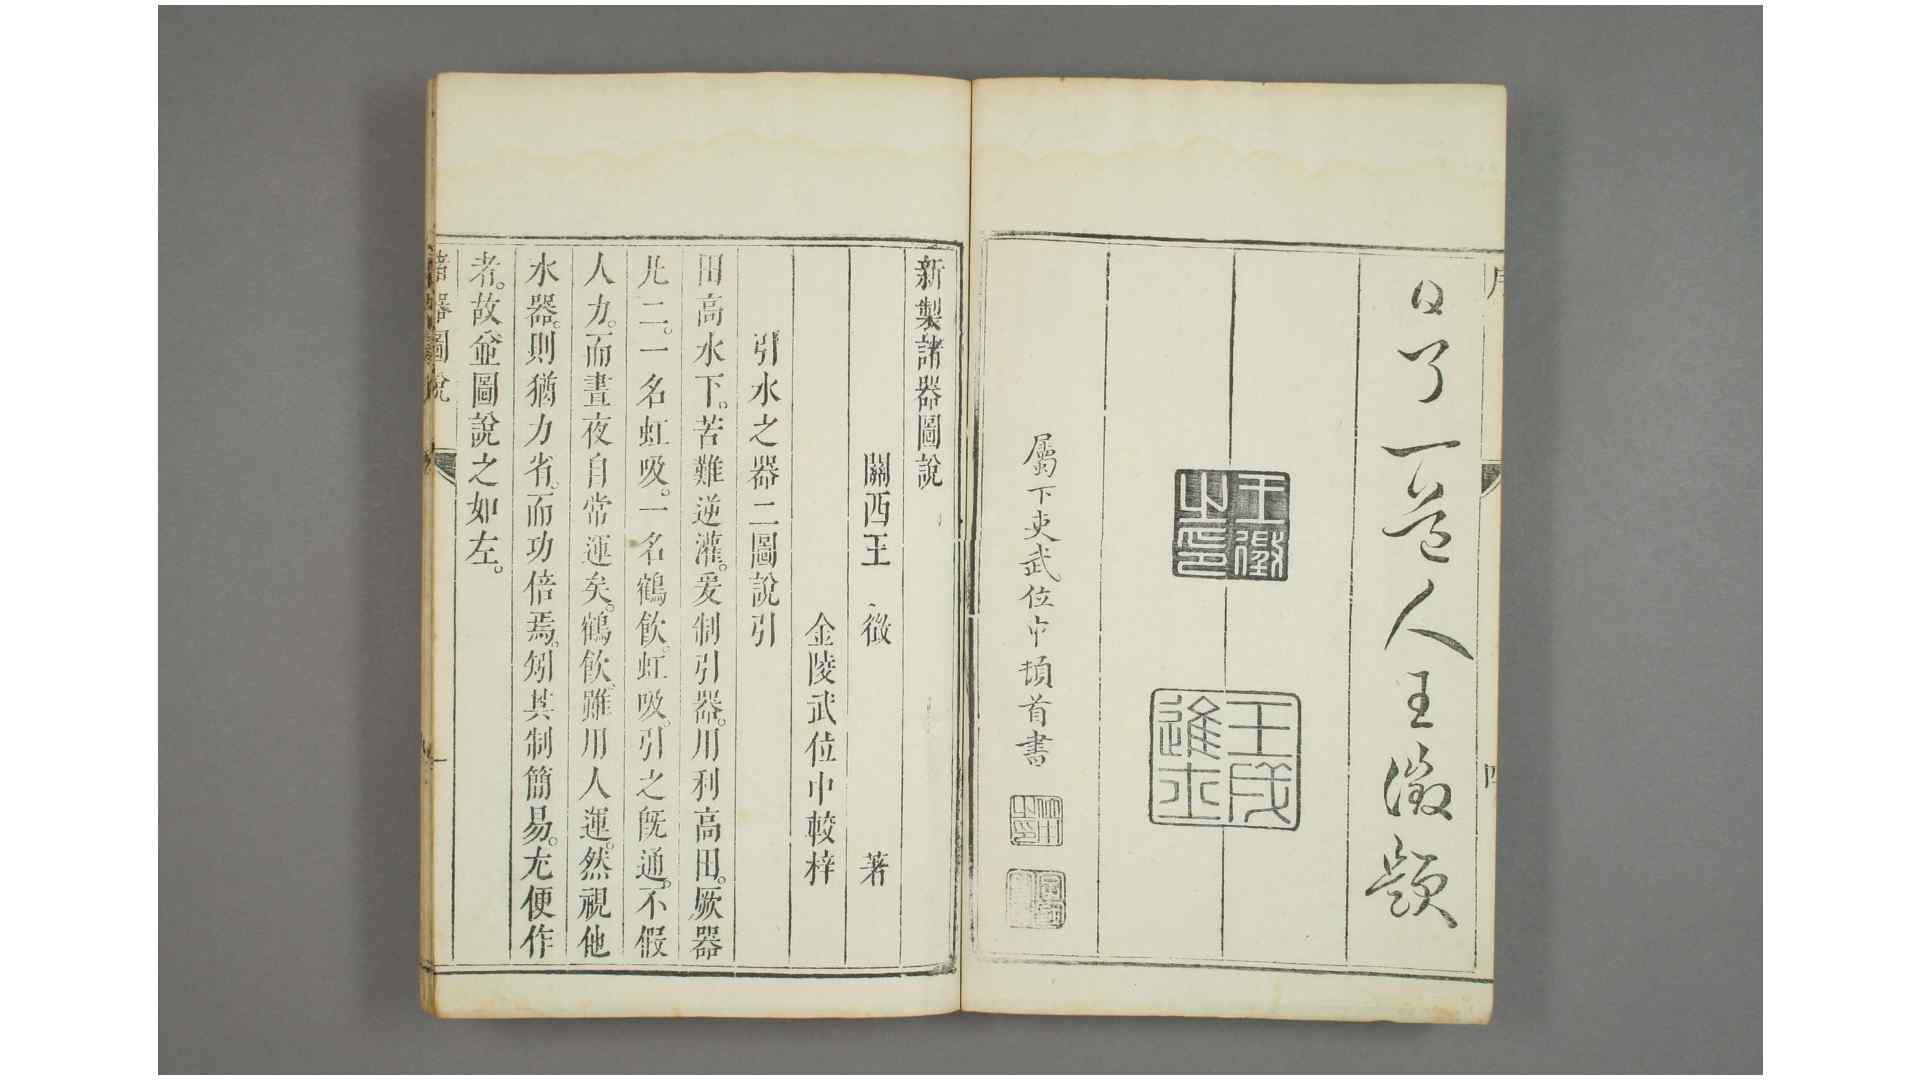 日了一道人王徵題
王徵之印
壬戌進士
屬下吏武位中頓首書
新製諸器圖說
關西王徵著
金陵武位中較梓
引水之器二圖說引
田高水下。苦難逆灌。爰制引器。用利高田。厥器
凡二。一名虹吸。一名鶴飲。虹吸。引之旣通。不假
人力。而晝夜自常運矣。鶴飲。雖用人運。然視他
水器。則猶力省。而功倍焉。矧其制簡易。尤便作
者。故並圖說之如左。
諸器圖說
一